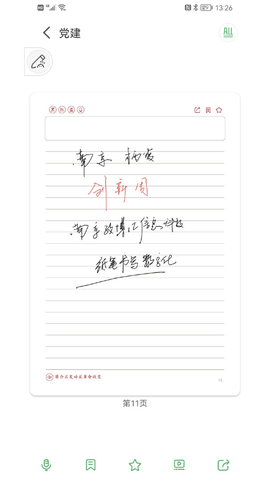 4G
13:26
党建
ALL
南京 栖霞
创新周
南京
信息科技
纸笔书写数字化
第11页